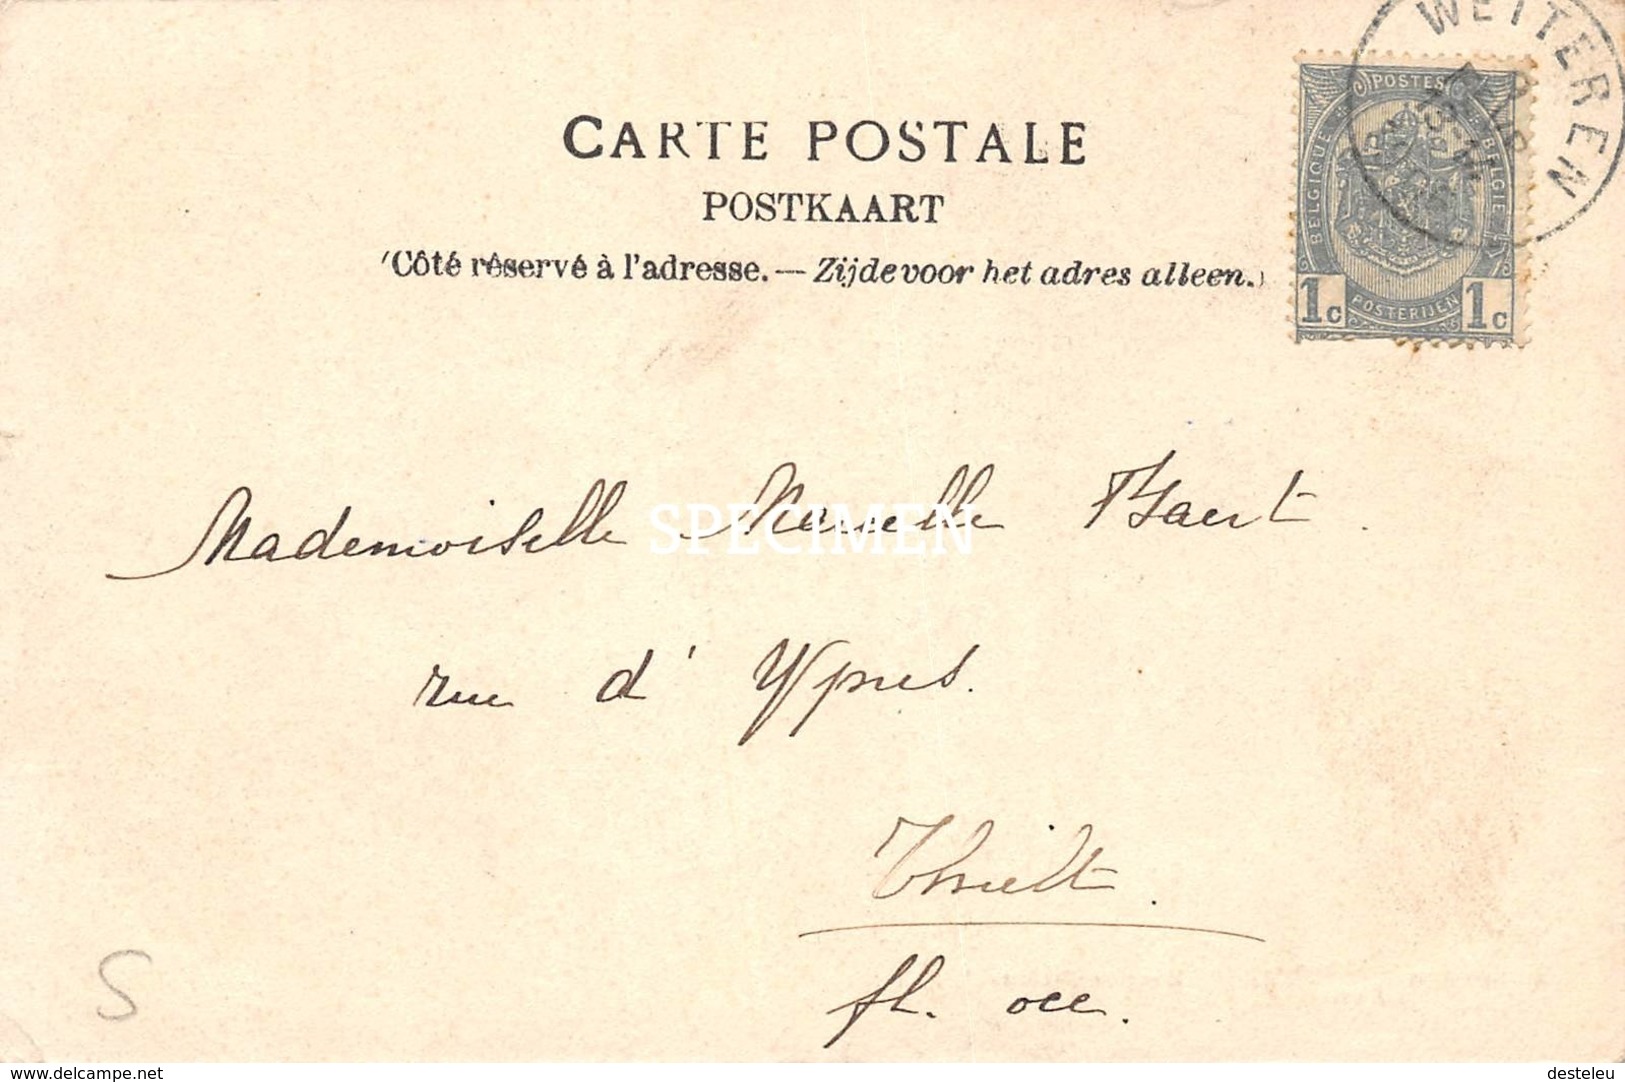 CARTE POSTALE
POSTKAART
(Côté réservé à l'adresse. — Zijde voor het adres alleen.)
WETTEREN
POSTES
BELGIQUE
BELGIE
POSTERIJEN
1c 1c
Mademoiselle Marcelle Baert.
SPECIMEN
rue d'Ypres.
Thielt.
fl. occ.
S
www.delcampe.net
desteleu